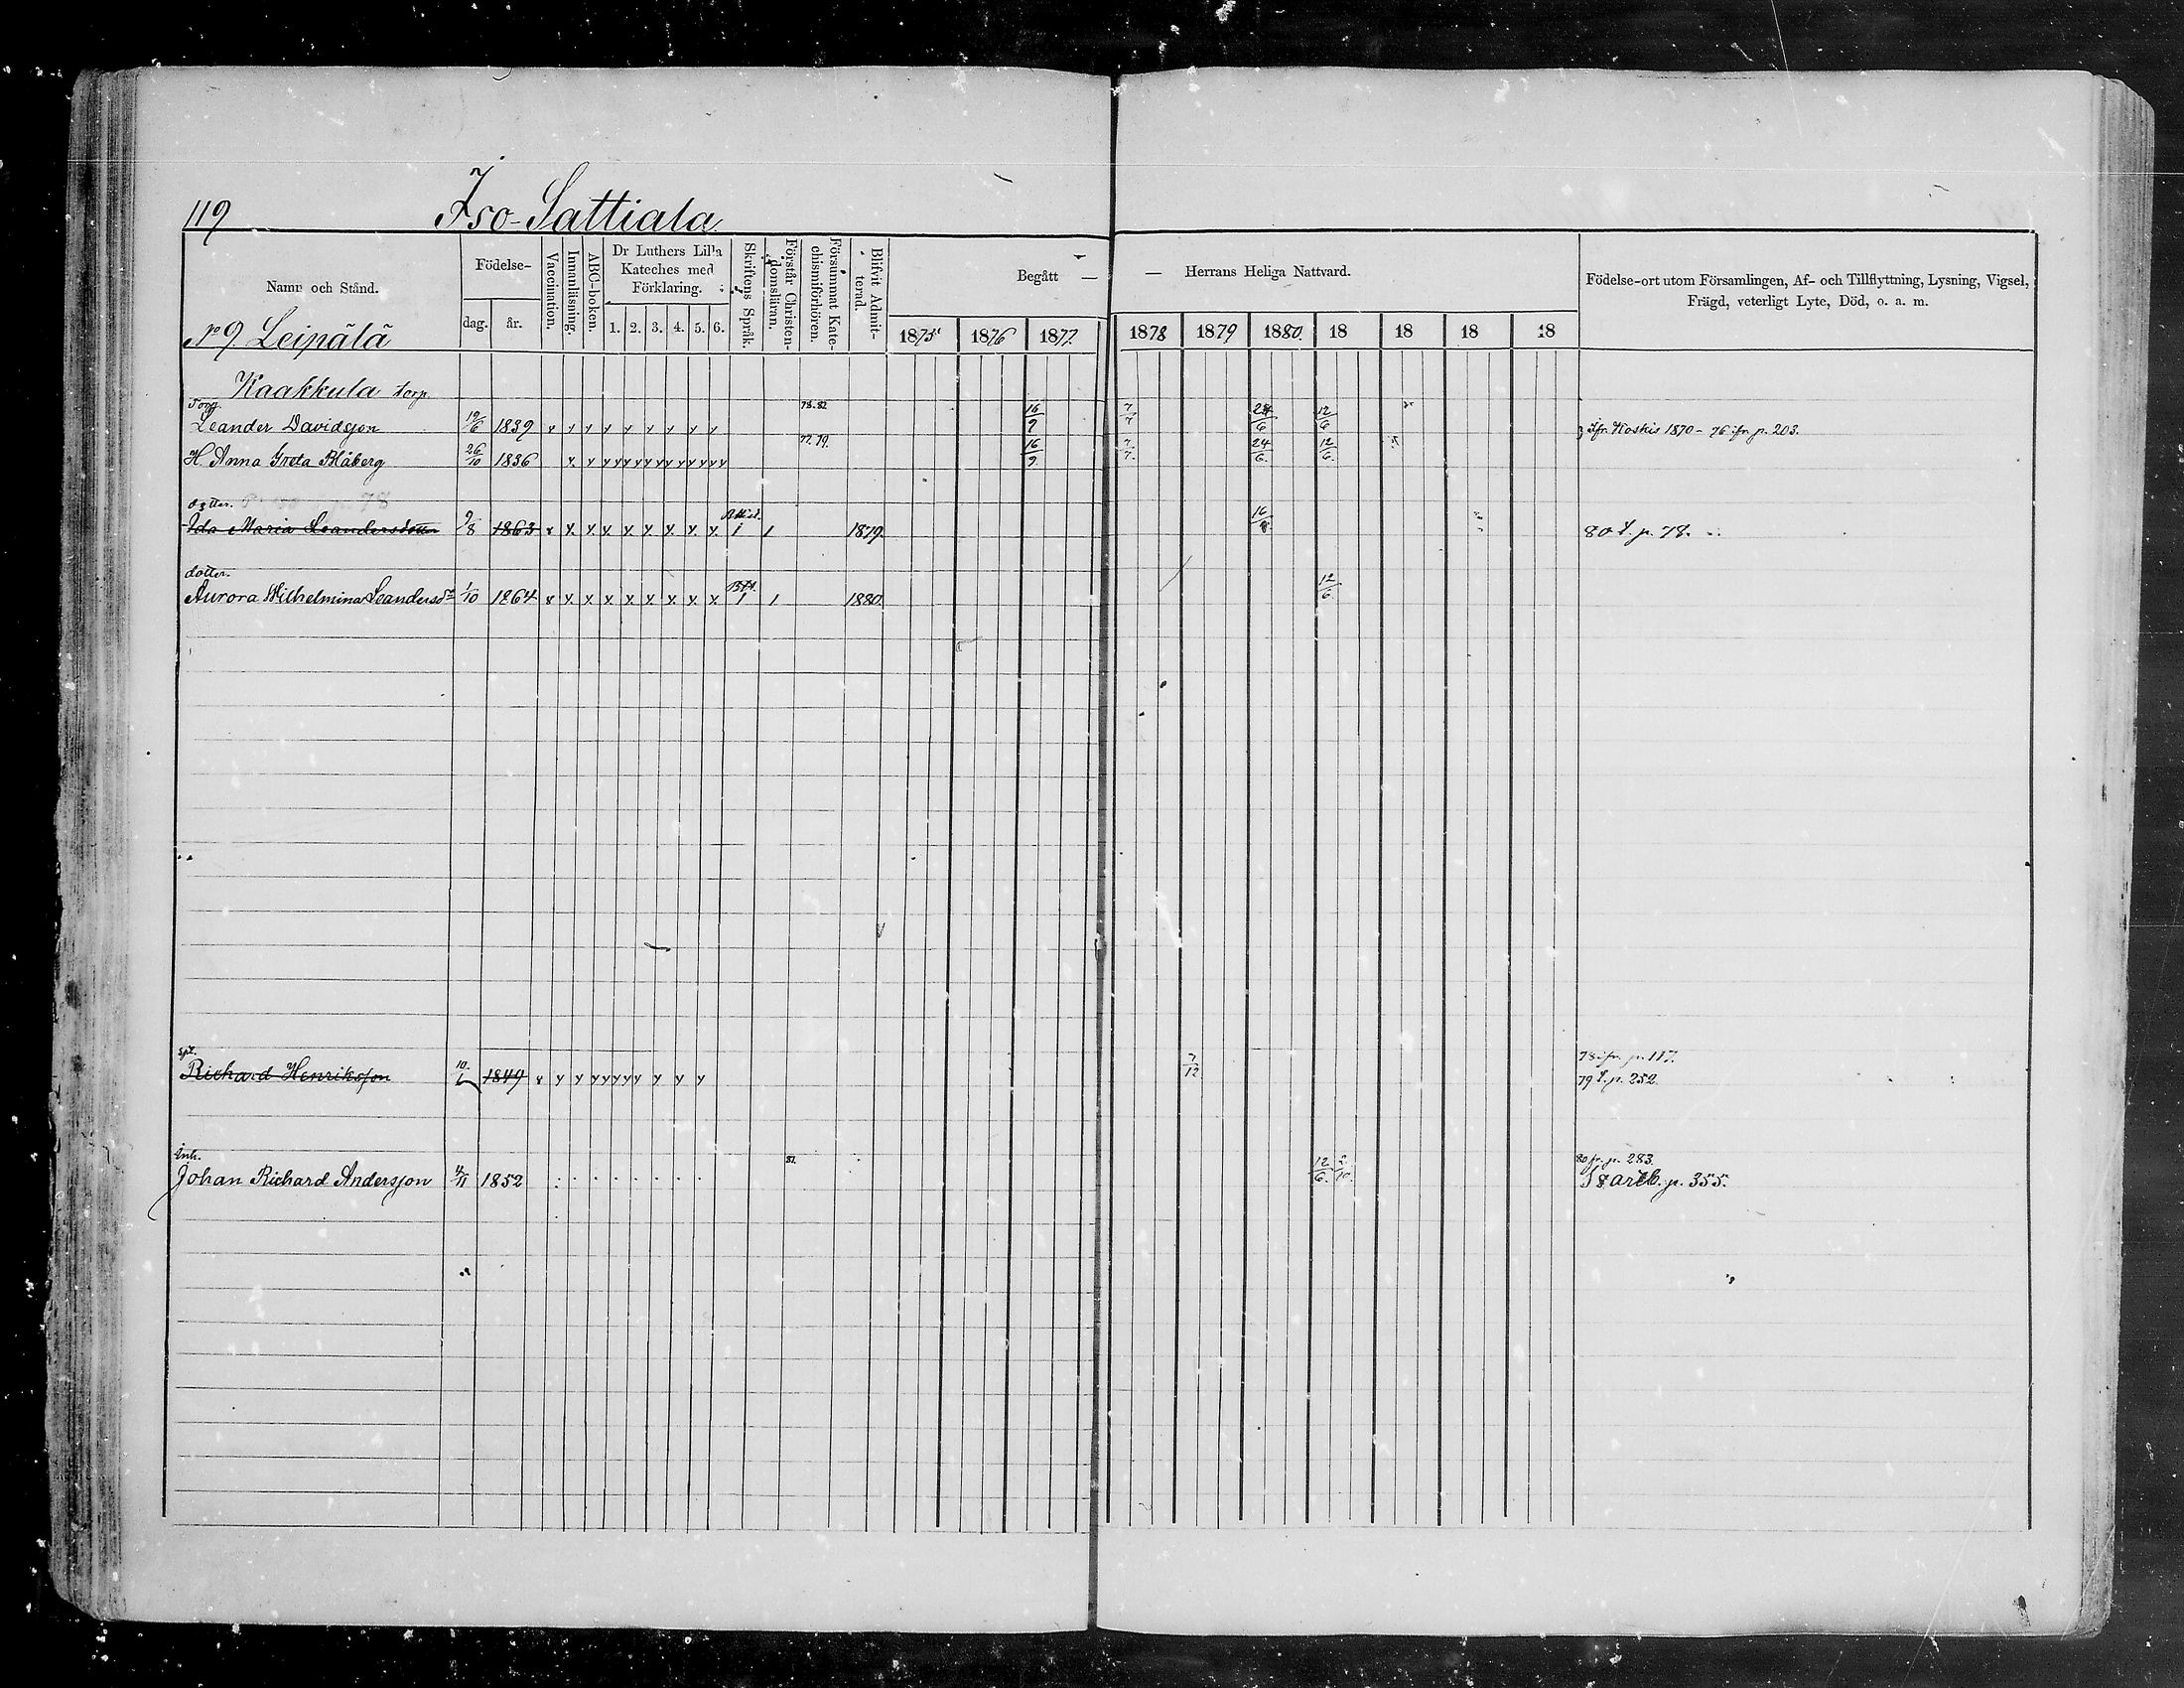 119 Iso-Sattiala
Namn och Stånd.
Födelse-
dag. år.
Vaccination.
Innanläsning.
ABC-boken.
Dr Luthers Lilla Kateches med Förklaring.
1. 2. 3. 4. 5. 6.
Skriftens Språk.
Förstår Christen-domsläran.
Försummat Kate-chismiförhören.
Blifvit Admit-terad.
Begått — — Herrans Heliga Nattvard.
1875 1876 1877. 1878 1879 1880. 18 18 18 18
Födelse-ort utom Församlingen, Af- och Tillflyttning, Lysning, Vigsel,
Frägd, veterligt Lyte, Död, o. a. m.
No 9 Leipälä
Kaakkula torp.
Torp. 78.82
Leander Davidsson 19/6 1839 v y y y y y y y y 16/9 7/7 24/6 12/6 ifr. Koskis 1870 - 76 ifr. p. 203.
77.79.
H. Anna Greta Blåberg 26/10 1836 y y y y y y y y y y y y y 16/9. 7/7. 24/6. 12/6.
dotter. 78
Ida Maria Leandersdotter 9/8 1863 v x x x x x x x x 1 1 1879. 16/8. 80 t. p. 78.
dotter.
Aurora Wilhelmina Leandersdr 1/10 1864 v x x x x x x x x 1 1 1880. 12/6.
Richard Henriksson 10/6 1849 v y y y y y y y y y y 7/12. 78 ifr. p. 117.
79 t. p. 252.
Inh. 81.
Johan Richard Andersson 4/11 1852 12/6. 2/10. 80 fr. p. 283.
p. 355.